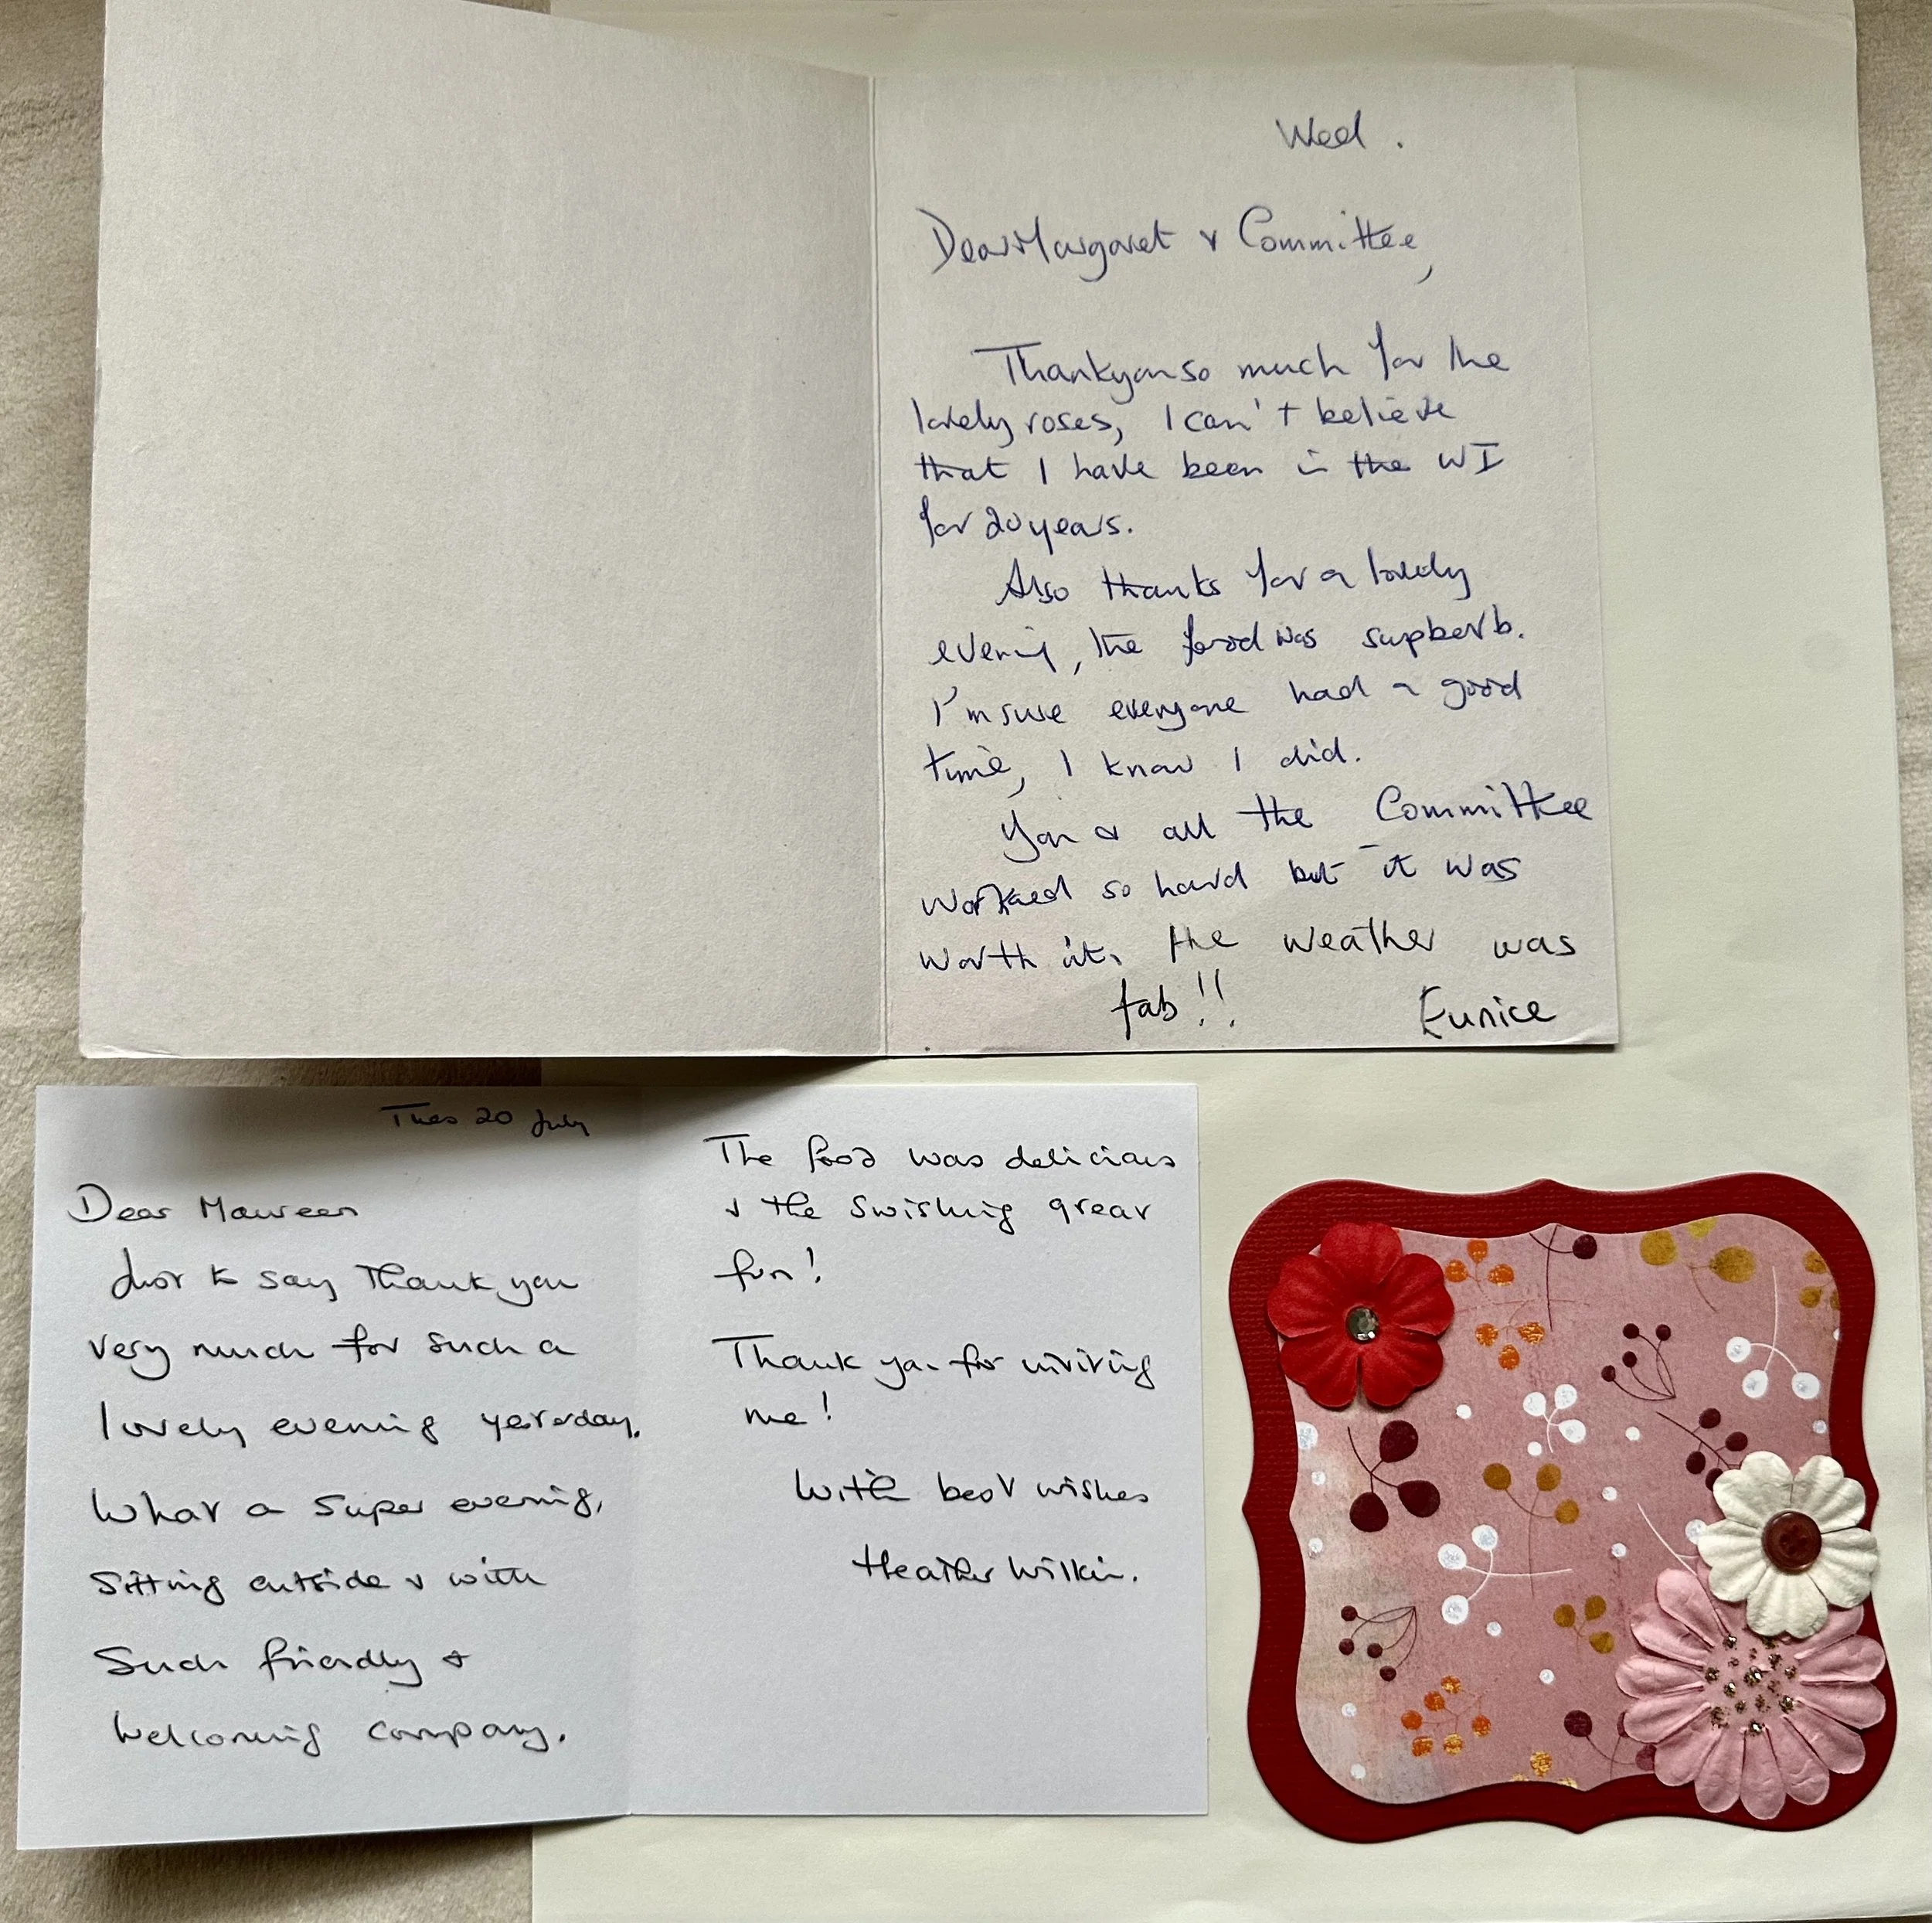 Wed.
Dear Margaret & Committee,
Thankyou so much for the
lovely roses, I can't believe
that I have been in the WI
for 20 years.
Also thanks for a lovely
evening, the food was supberb.
I'm sure everyone had a good
time, I know I did.
You & all the Committee
worked so hard but it was
worth it. the weather was
fab!!
Eunice
Tues 20 July
Dear Maureen
Just to say Thank you
very much for such a
lovely evening yesterday.
What a super evening,
sitting outside & with
such friendly &
welcoming company.
The food was delicious
& the swishing great
fun!
Thank you for inviting
me!
With best wishes
Heather Wilkin.